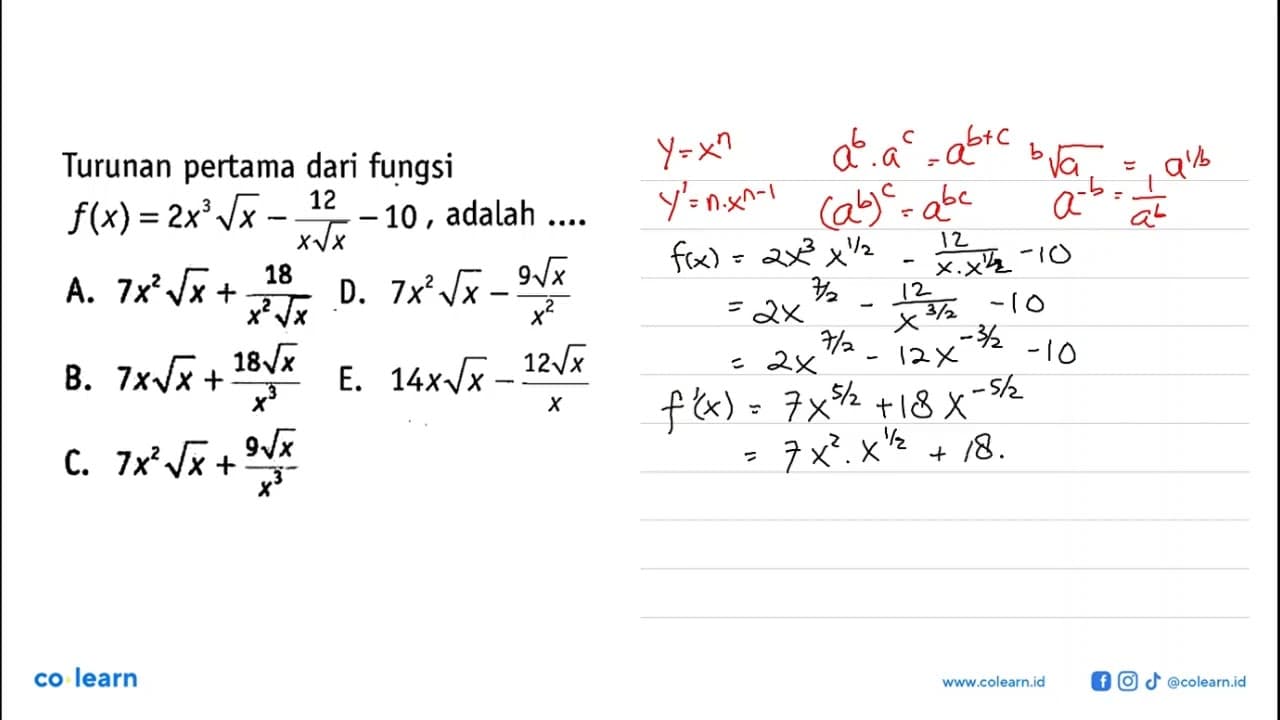 Turunan pertama dari fungsi
f(x) = 2x³√x − 12/(x√x) − 10 , adalah ....
A. 7x²√x + 18/(x²√x)
B. 7x√x + 18√x/x³
C. 7x²√x + 9√x/x³
D. 7x²√x − 9√x/x²
E. 14x√x − 12√x/x
y = xⁿ
y' = n.xⁿ⁻¹
a^b . a^c = a^(b+c)
(a^b)^c = a^(bc)
ᵇ√a = a^(1/b)
a^(-b) = 1/a^b
f(x) = 2x³ x^(1/2) − 12/(x.x^(1/2)) − 10
= 2x^(7/2) − 12/x^(3/2) − 10
= 2x^(7/2) − 12x^(-3/2) − 10
f'(x) = 7x^(5/2) + 18x^(-5/2)
= 7x² . x^(1/2) + 18.
co learn
www.colearn.id
@colearn.id